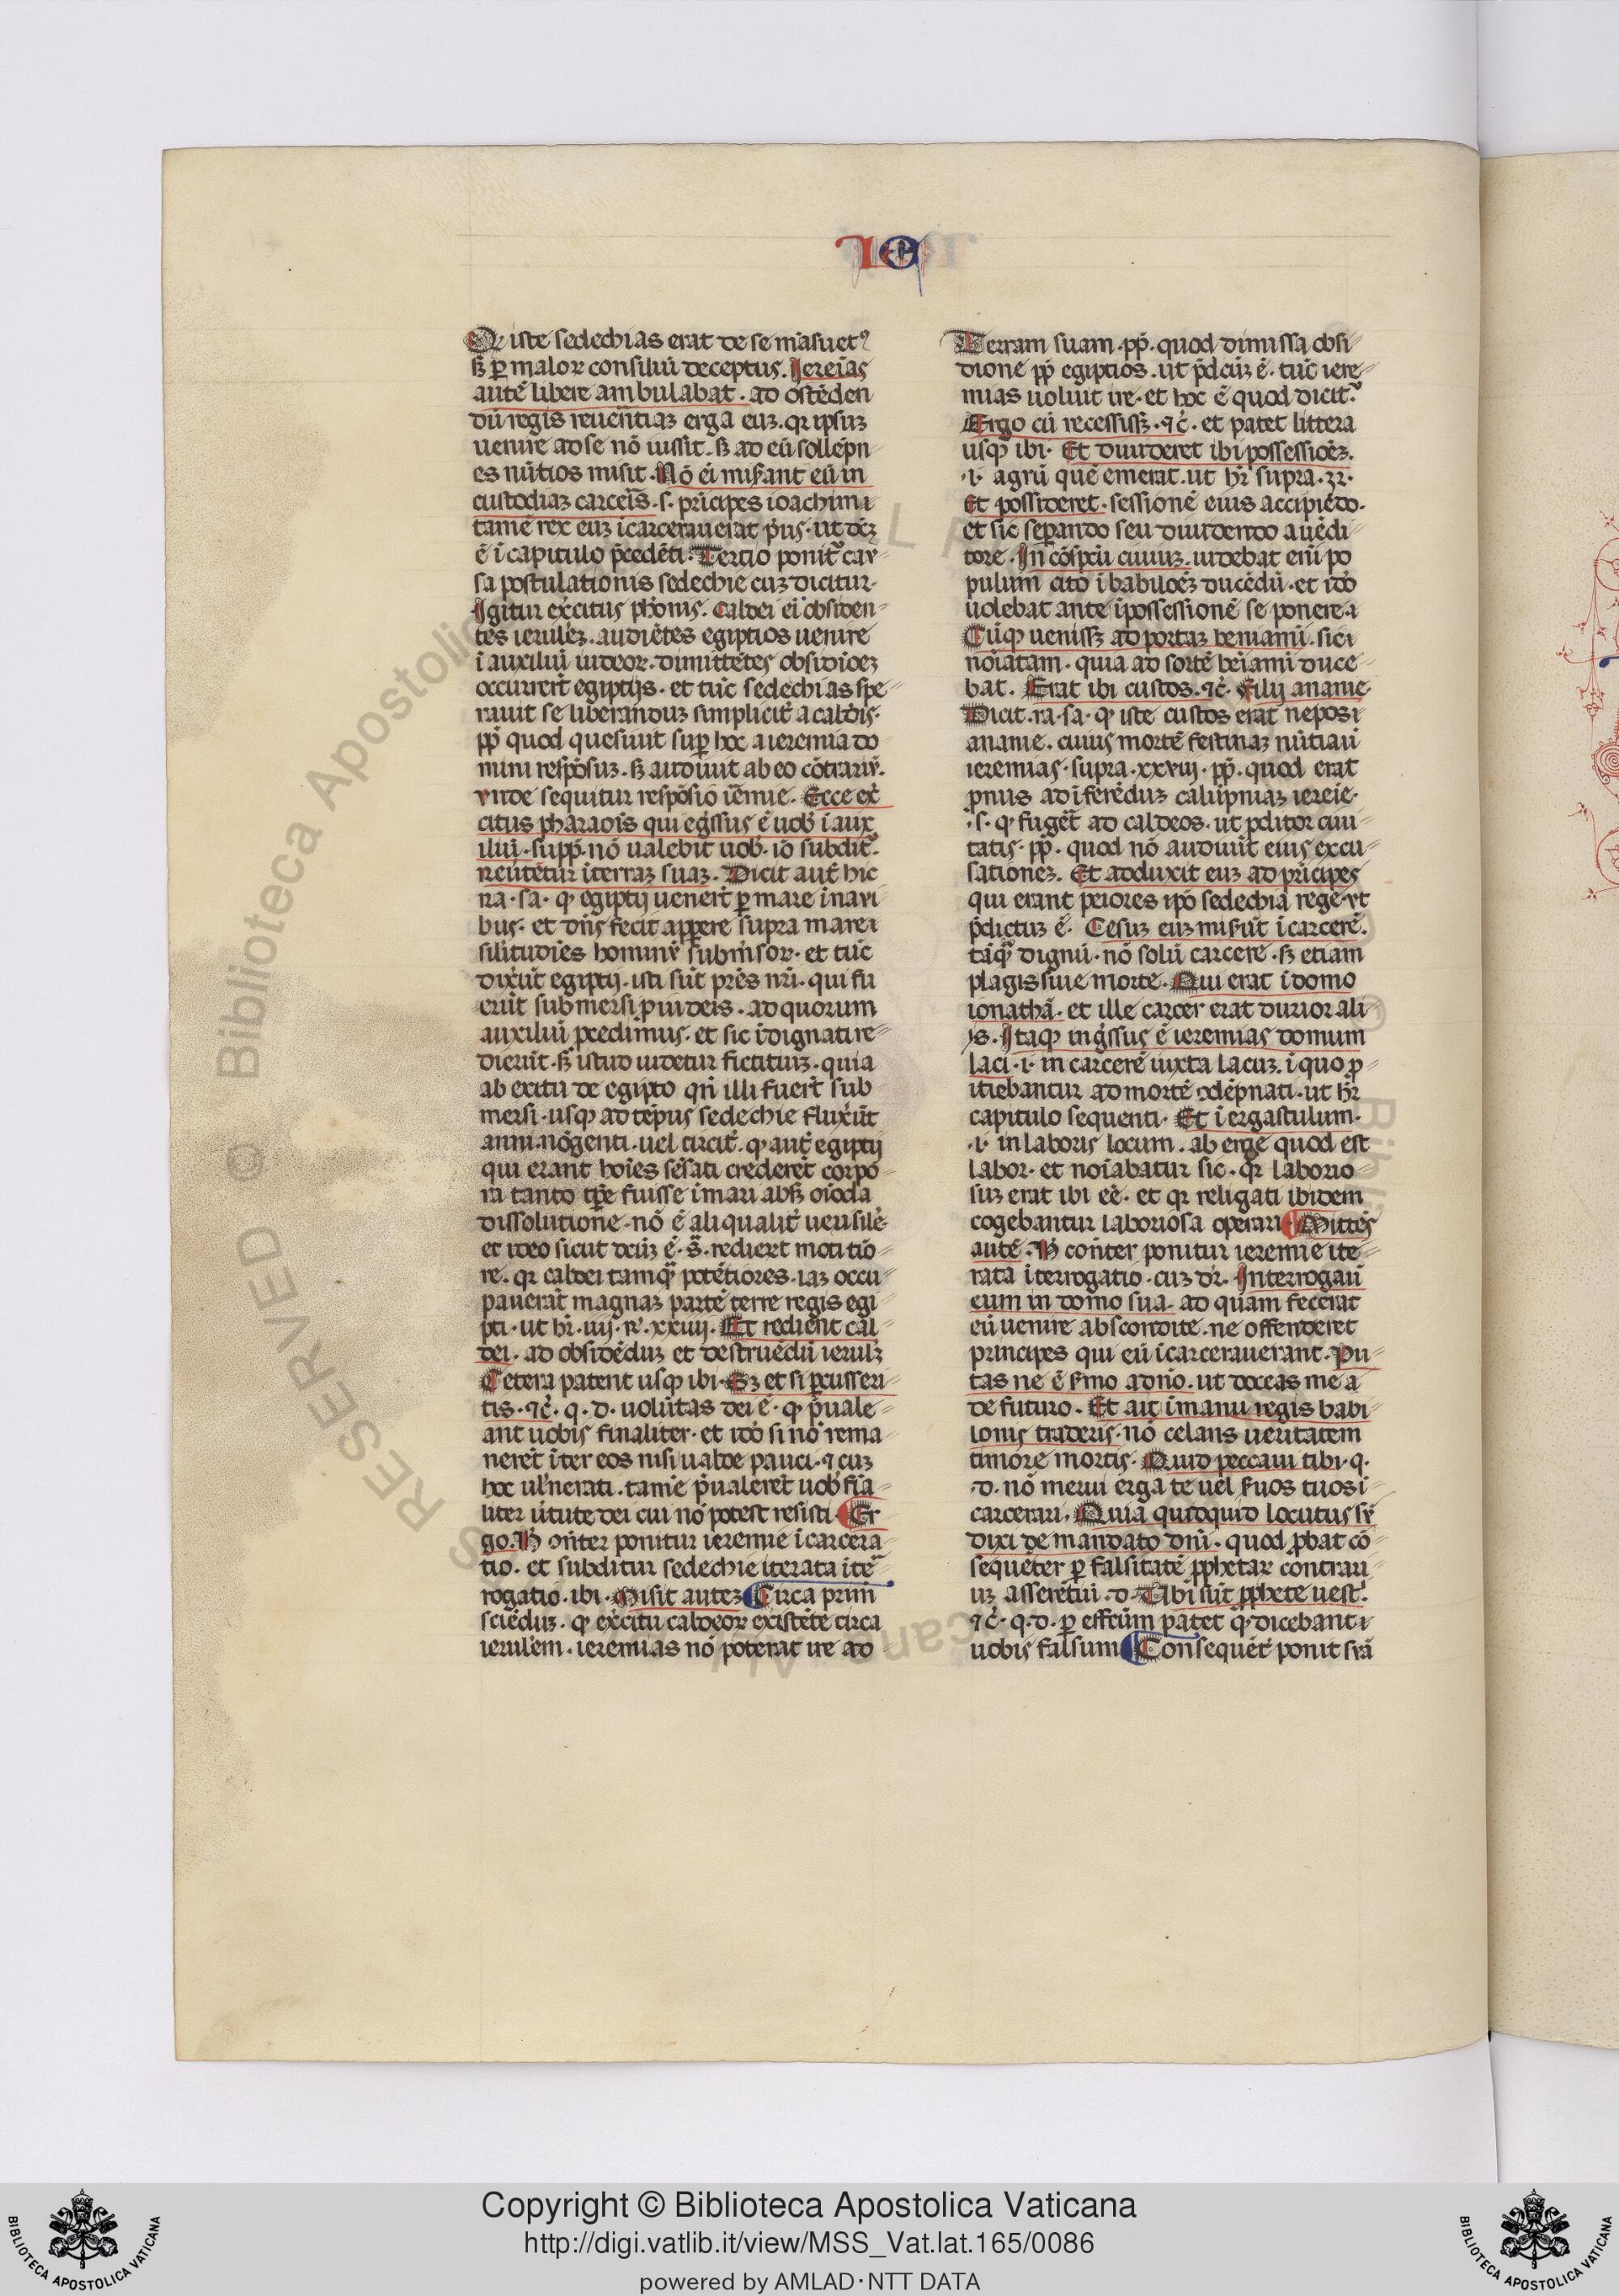 IE
Qr iste sedechias erat de se mãsuetꝰ
sꝫ ꝑ maloꝝ consiliũ deceptus. Jereĩas
autẽ libere ambulabat. ad ostẽden
dũ regis reuerẽtiaꝫ erga euꝫ. qr ipsuꝫ
uenire ad se nõ iussit. sꝫ ad eũ sollẽpn
es nũtios misit. Nõ eĩ miẜant eũ in
custodiaꝫ carceris. s. prĩcipes ioachim ı
tamẽ rex euꝫ ĩcarcerauerat pͥus. ut dcꝫ
ẽ ĩ capitulo pͥcedẽti. Tercio ponitᷣ cav
sa postulationis sedechie cuꝫ dicitur.
Igitur exc̃itus phõnis. Caldei eĩ obsiden
tes ierul̃eꝫ. audiẽtes egiptios uenire
ĩ auxiliũ iudeoꝝ. dimittẽtes obsidiõeꝫ
occurrerũt egiptijs. et tũc sedechias spe
rauit se liberanduꝫ simplicit̃ a caldĩs.
pp̃ quod quesiuit suꝑ hoc a ieremia do
mini respõsuꝫ. sꝫ audiuit ab eo cõtrariũ.
vnde sequitur respõsio iẽmie. Ecce exc̃
citus pharaois qui egͥssus ẽ uob̃ ĩ aux
iliũ. supp̃. nõ ualebit uob̃. iõ subditᷣ.
Reũtẽtur ĩ terraꝫ suaꝫ. Dicit aut̃ hic
ra. sa. ꝙ egiptij uenerũt ꝑ mare ĩ naui
bus. et dñs fecit apꝑere supra mare ı
silitudĩes hominũ submsoꝝ. et tũc
dixẽũt egiptij. isti sũt pr̃es nr̃i. qui fu
erũt submersi ꝓ iudeis. ad quorum
auxiliũ ꝓcedimus. et sic ĩdignati re
dierũt. sꝫ istud uidetur fictitiuꝫ. quia
ab exitu de egipto qñ illi fuerũt sub
mersi. usqꝫ ad tẽpus sedechie fluxẽũt
anni. nõgenti. uel circit̃. ꝙ aut̃ egiptij
qui erant hoĩes sẽsati crederẽt corpo
ra tanto tꝑe fuisse ĩ mari absqꝫ oĩoda
dissolutione. nõ ẽ aliqualit̃ uerisilẽ.
et ideo sicut dcũꝫ ẽ. sᷓ. redierũt moti tiõ
re. qr caldei tamqᷓ potẽtiores. iaꝫ occu
pauerãt magnaꝫ partẽ terre regis egi
pti. ut hr̃. iiij. R̃. xxiiij. Et redient cal
dei. ad obsidẽduꝫ et destruẽdũ ierul̃ꝫ
Cetera patent usqꝫ ibi. Sꝫ et si ꝑcusseri
tis. ⁊c̃. q. d. uolũtas dei ẽ. ꝙ pͥuale
ant uobis finaliter. et idõ si nõ rema
nerẽt ĩter eos nisi ualde pauci. ⁊ cuꝫ
hoc uĺnerati. tamẽ pͥualerẽt uob̃ fĩa
liter ũtute dei cui nõ potest resisti Er
go. H̃ oñter ponitur ieremie ĩcarcera
tio. et subditur sedechie iterata ĩtẽ
rogatio. ibi. Misit auteꝫ Circa primũ
sciẽduꝫ. ꝙ exc̃itu caldeoꝝ existẽte circa
ierul̃em. ieremias nõ poterat ire ad
Terram suam. pp̃. quod dimissa obsi
dione pp̃ egiptios. ut pͥdcũꝫ ẽ. tũc iere
mias uoluit ire. et hoc ẽ quod dicitᷣ.
Ergo cũ recessissꝫ. ⁊c̃. et patet littera
usqꝫ ibi. Et diuideret ibi possessiõeꝫ.
.i. agrũ quẽ emerat. ut hr̃ supra. 32.
Et possideret. sessionẽ eius accipiẽdo.
et sic seꝑando seu diuidendo a uẽdi
tore. In cõspcũ ciuiuꝫ. uidebat eniĩ po
pulum cito ĩ babiloẽꝫ ducẽdũ. et idõ
uolebat ante ĩ possessionẽ se ponere ı
Cũqꝫ uenissꝫ ad portaꝫ beniamĩ. sic ı
noĩatam. quia ad sortẽ beĩamĩ duce
bat. Erat ibi custos. ⁊c̃. filij ananie
Dicit. ra. sa. ꝙ iste custos erat nepos ı
ananie. cuius mortẽ festinaꝫ nũtiaũ
ieremias. supra. xxviij. pp̃. quod erat
ꝓnus ad ĩferẽduꝫ calũpniaꝫ iereĩe.
.s. ꝙ fugeret ad caldeos. ut ꝓditor ciui
tatis. pp̃. quod nõ audiuit eius excu
sationeꝫ. Et adduxit euꝫ ad prĩcipes
qui erant peiores ip̃o sedechia rege. vt
pͥdictuꝫ ẽ. Cesuꝫ euꝫ miẜũt ĩ carcerẽ.
tãqᷓ dignũ. nõ solũ carcere. sꝫ etiam
plagis siue morte. Qui erat ĩ domo
ionathã. et ille carcer erat durior ali
js. Itaqꝫ ingͥssus ẽ ieremias domum
laci. i. in carcerẽ iuxta lacuꝫ. ĩ quo p
itiebantur ad mortẽ ꝯdẽpnati. ut hr̃
capitulo sequenti. Et ĩ ergastulum.
.i. in laboris locum. ab erge quod est
labor. et noĩabatur sic. qr laborio
suꝫ erat ibi eẽ. et qr religati ibidem
cogebantur laboriosa operari Mittẽs
autẽ. H̃ coñter ponitur ieremie ite
rata ĩterrogatio. cuꝫ dr̃. Interrogaũ
eum in domo sua. ad quam fecerat
eũ uenire abscondite. ne offenderet
principes qui eũ ĩcarcerauerant. Pu
tas ne ẽ ẜmo a dño. ut doceas me a
de futuro. Et ait ĩ manu regis babi
lonis traderis. nõ celans ueritatem
timore mortis. Quid peccaui tibi. q.
.d. nõ merui erga te uel ẜuos tuos ı
carcerari. Quia quidquid locutus sũ
dixi de mandato dñi. quod ꝓbat cõ
sequẽter ꝑ falsitatẽ ꝓphetaꝝ contrari
uꝫ asserẽtiũ. d. Ubi sũt ꝓphete uestͥ.
⁊c̃. q. d. ꝑ effectũm patet ꝙ. dicebant ı
uobis falsum Consequẽt ponit suã
Copyright © Biblioteca Apostolica Vaticana
http://digi.vatlib.it/view/MSS_Vat.lat.165/0086
powered by AMLAD·NTT DATA